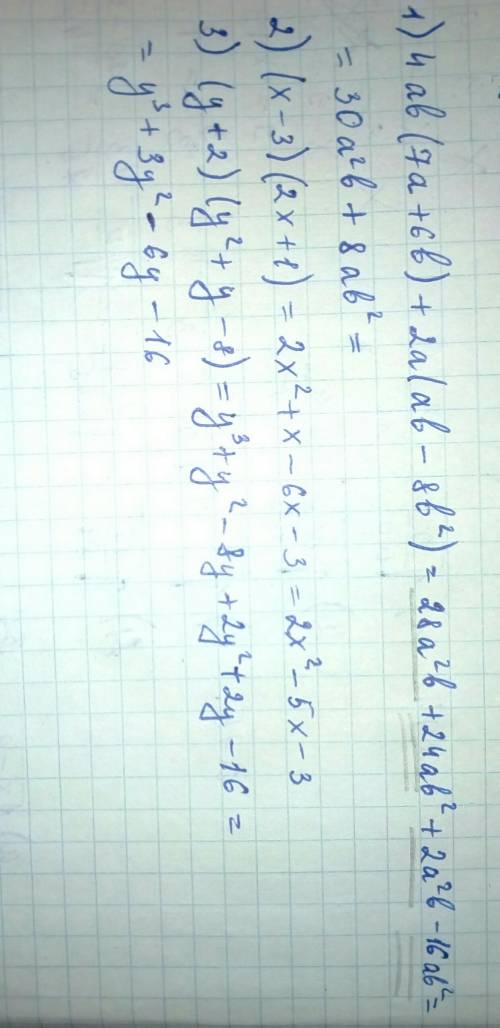 1) 4ab(7a+6b)+2a(ab-8b²)=28a²b+24ab²+2a²b-16ab²=
=30a²b+8ab²=
2) (x-3)(2x+1)=2x²+x-6x-3=2x²-5x-3
3) (y+2)(y²+y-8)=y³+y²-8y+2y²+2y-16=
=y³+3y²-6y-16